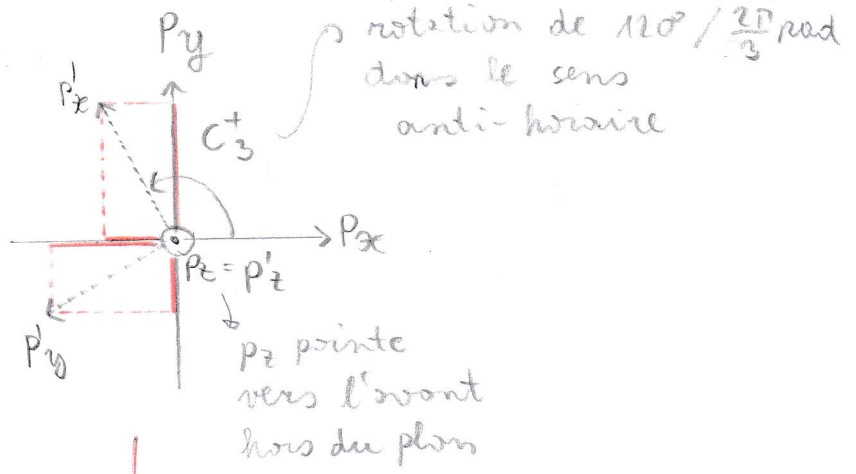 rotation de 120° / 2π/3 rad
dans le sens
anti-horaire
Py
P'x
C3+
Px
Pz = P'z
P'y
Pz pointe
vers l'avant
hors du plan